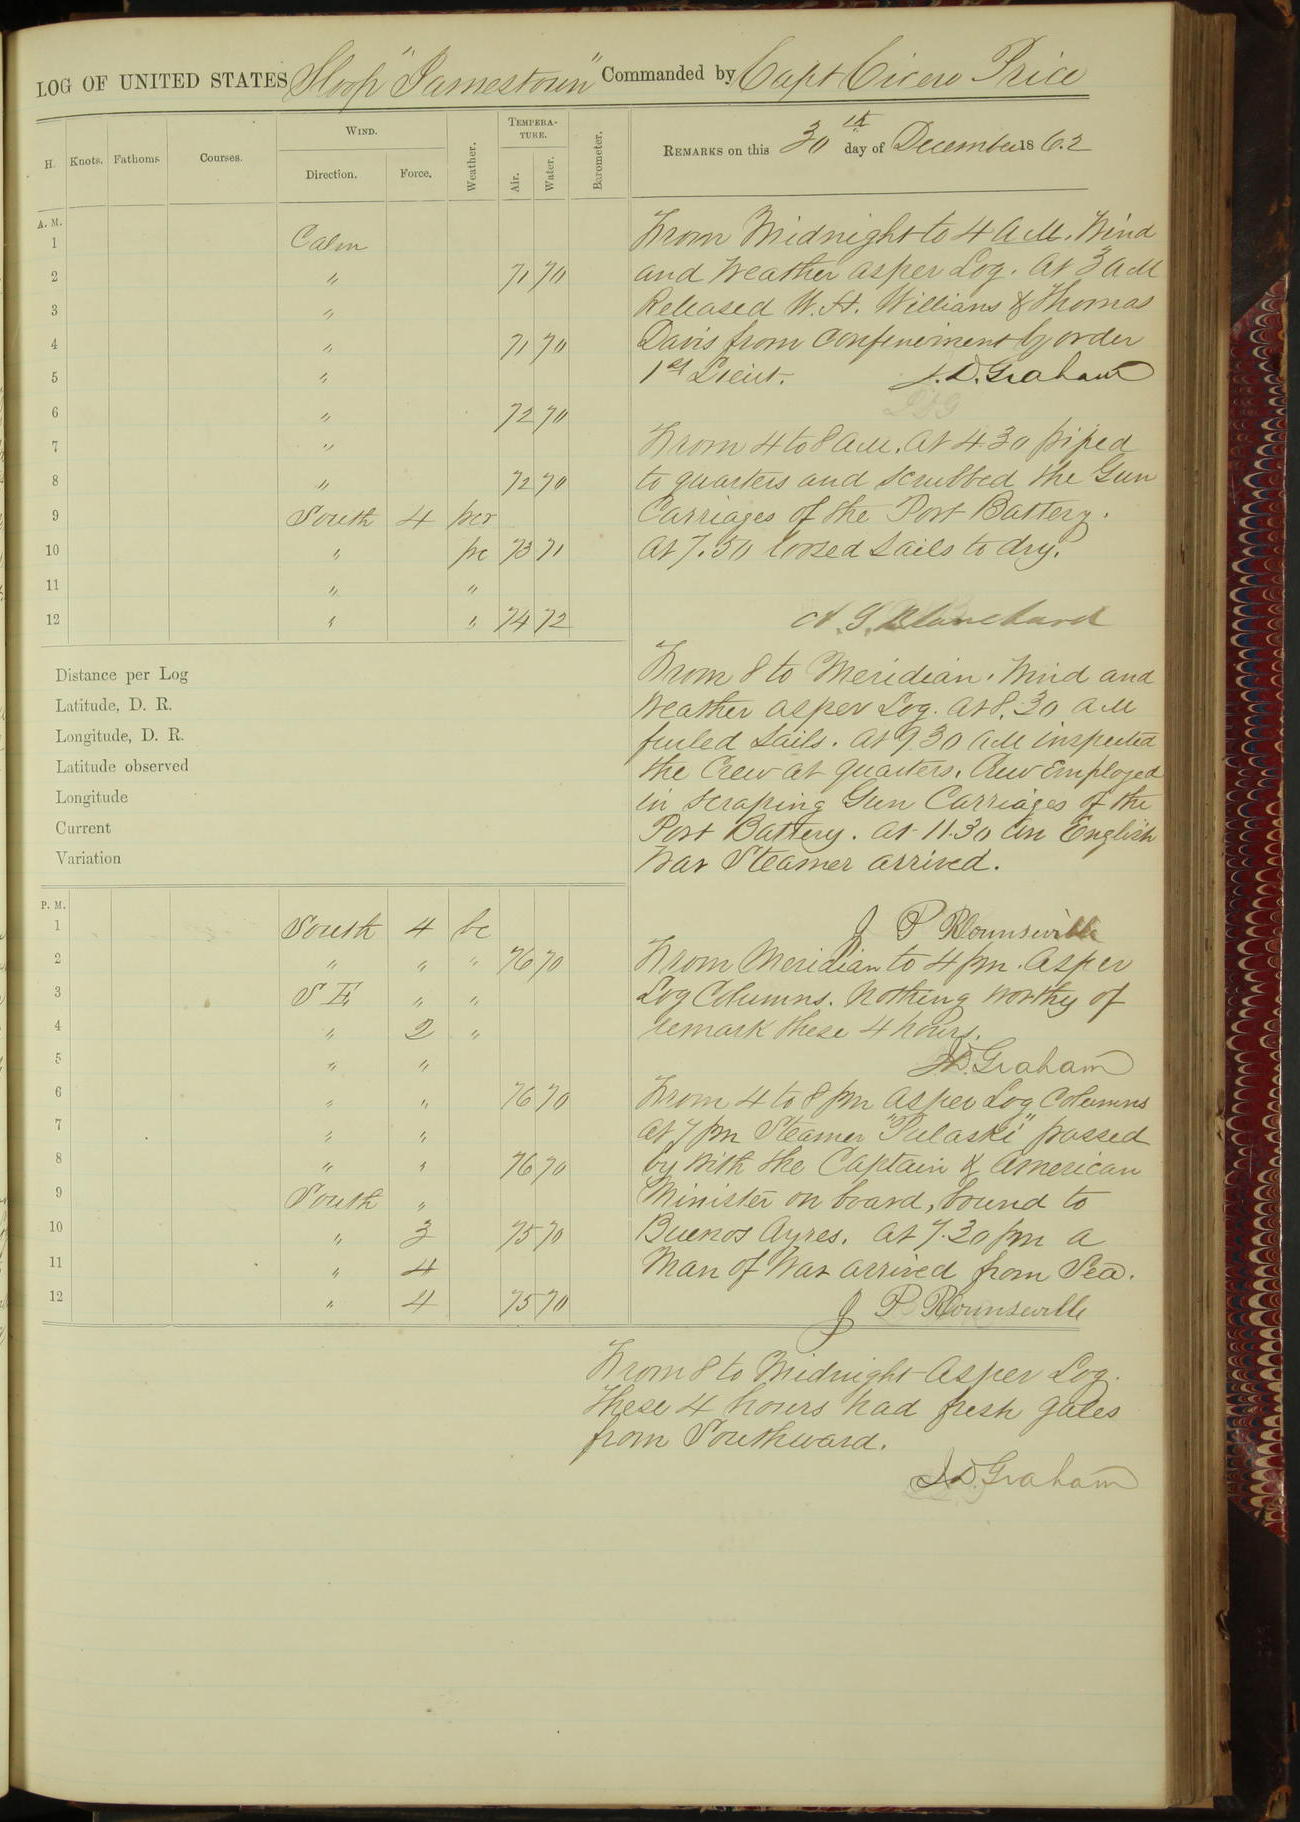 LOG OF UNITED STATES Sloop "Jamestown" Commanded by Capt Cicero Price
H. Knots. Fathoms. Courses. WIND. Direction. Force. Weather. TEMPERATURE. Air. Water. Barometer.
REMARKS on this 30th day of December 1862
A. M.
1 Calm
2 " 71 70
3 "
4 " 71 70
5 "
6 " 72 70
7 "
8 " 72 70
9 South 4 bcr
10 " bc 73 71
11 " "
12 " " 74 72
From Midnight to 4 A.M. Wind
and Weather as per Log. At 3 AM
Released W. H. Willians & Thomas
Davis from confinement by order
1st Lieut. J. D. Graham
From 4 to 8 AM. At 4 30 piped
to quarters and scrubbed the Gun
Carriages of the Port Battery.
At 7.30 loosed Sails to dry.
Blanchard
From 8 to Meridian. Wind and
Weather as per Log. At 8.30 AM
furled Sails. At 9 30 AM inspected
the Crew at quarters. Crew Employed
in scraping Gun Carriages of the
Port Battery. At 11.30 an English
War Steamer arrived.
J P Rounseville
Distance per Log
Latitude, D. R.
Longitude, D. R.
Latitude observed
Longitude
Current
Variation
P. M.
1 South 4 bc
2 " " " 76 70
3 S E " "
4 " 2 "
5 " "
6 " " 76 70
7 " "
8 " " 76 70
9 South "
10 " 3 75 70
11 " 4
12 " 4 75 70
From Meridian to 4 pm. As per
Log Columns. Nothing worthy of
remark these 4 hours.
J.D. Graham
From 4 to 8 pm as per Log Columns
At 7 pm Steamer "Pulaski" passed
by with the Captain & American
Minister on board, bound to
Buenos Ayres. At 7.30 pm a
Man of War arrived from Sea.
J P Rounseville
From 8 to Midnight As per Log.
These 4 hours had fresh gales
from Southward.
J.D. Graham